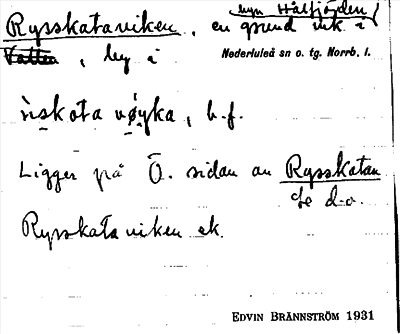 Rysskataviken, en grund vik i
byn Hålfjärden,
Vatten, by i
Nederluleå sn o. tg. Norrb. l.
b.f.
Ligger på Ö. sidan av Rysskatan
se d.o.
Rysskataviken ek.
EDVIN BRÄNNSTRÖM 1931